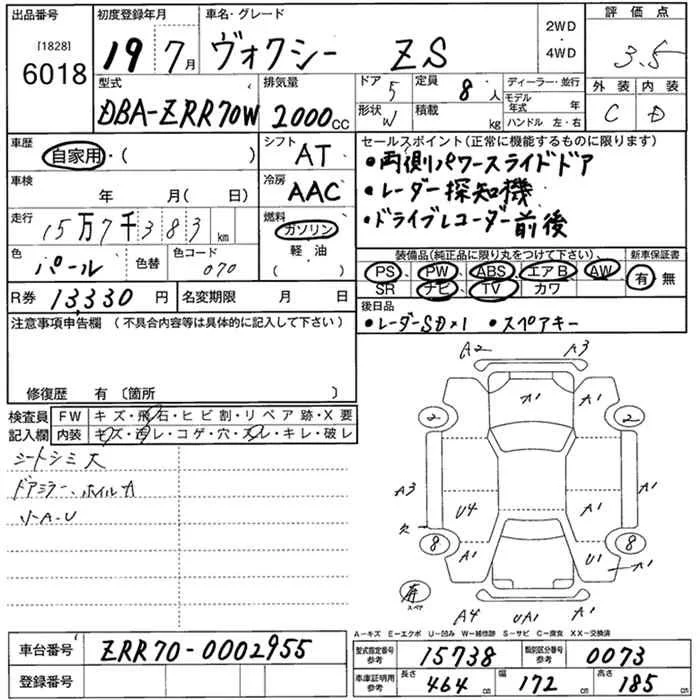 出品番号 初度登録年月 車名・グレード 評価点
[1828] 2WD
6018 19 7月 ヴォクシー ZS ・ 3.5
4WD
型式 排気量 ドア 5 定員 8 人 ディーラー・並行 外装 内装
モデル年式 年
DBA-ZRR70W 2000cc 形状 W 積載 kg ハンドル 左・右 C D
車歴 シフト セールスポイント(正常に機能するものに限ります)
自家用・( ) AT ・両側パワースライドドア
車検 冷房 ・レーダー探知機
年 月( 日) AAC ・ドライブレコーダー前後
走行 燃料
15万7千383km ガソリン
色 色替 色コード 軽・油 装備品(純正品に限り丸をつけて下さい) 新車保証書
パール 070 ( ) PS PW ABS エアB AW 有・無
R券 13,330円 名変期限 月 日 SR ナビ TV カワ
注意事項申告欄(不具合内容等は具体的に記入して下さい) 後日品
・レーダーSD×1 ・スペアキー
修復歴 有〔箇所 〕
検査員 FW キズ・飛石・ヒビ割・リペア跡・X要
記入欄 内装 キズ・汚レ・コゲ・穴・スレ・キレ・破レ
シートシミ大
ドアミラー、ホイルA
A2 A3
A1 A1
2 2
A3 A1 A1
U4 A1
8 8
A1 U1 A1
スペア
A4 UA1 A1
A-キズ E-エクボ U-凹み W-補修跡 S-サビ C-腐食 XX-交換済
車台番号 ZRR70-0002955 型式指定番号 参考 15738 類別区分番号 参考 0073
登録番号 車庫証明用 参考 長さ 464cm 幅 172cm 高さ 185cm